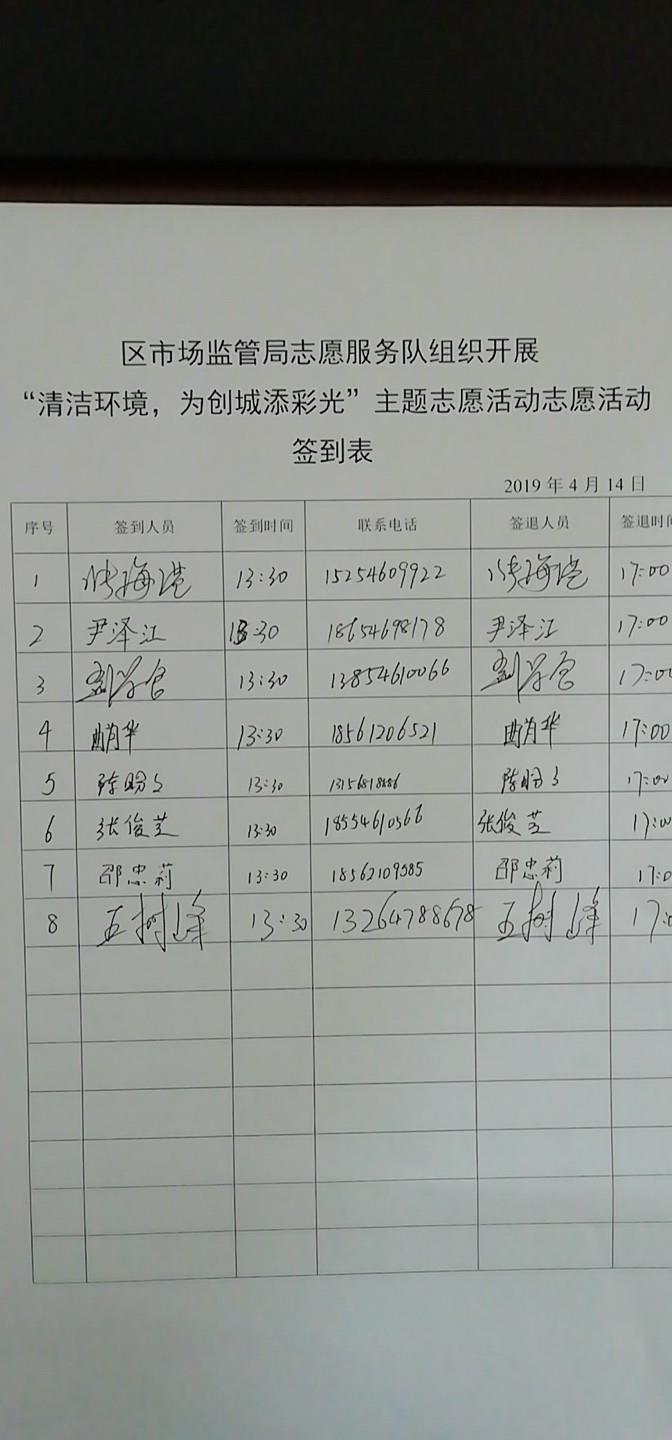 区市场监管局志愿服务队组织开展
“清洁环境，为创城添彩光”主题志愿活动志愿活动
签到表
2019年4月14日
序号 签到人员 签到时间 联系电话 签退人员 签退时间
1 张海港 13:30 15254609922 张海港 17:00
2 尹泽江 13:30 18654698178 尹泽江 17:00
3 13:30 13854610066 17:00
4 13:30 18561206521 17:00
5 13:30 17:00
6 张俊芝 13:30 18554610566 张俊芝 17:00
7 邵忠莉 13:30 18562109585 邵忠莉 17:0
8 王树峰 13:30 13264788678 王树峰 17:0